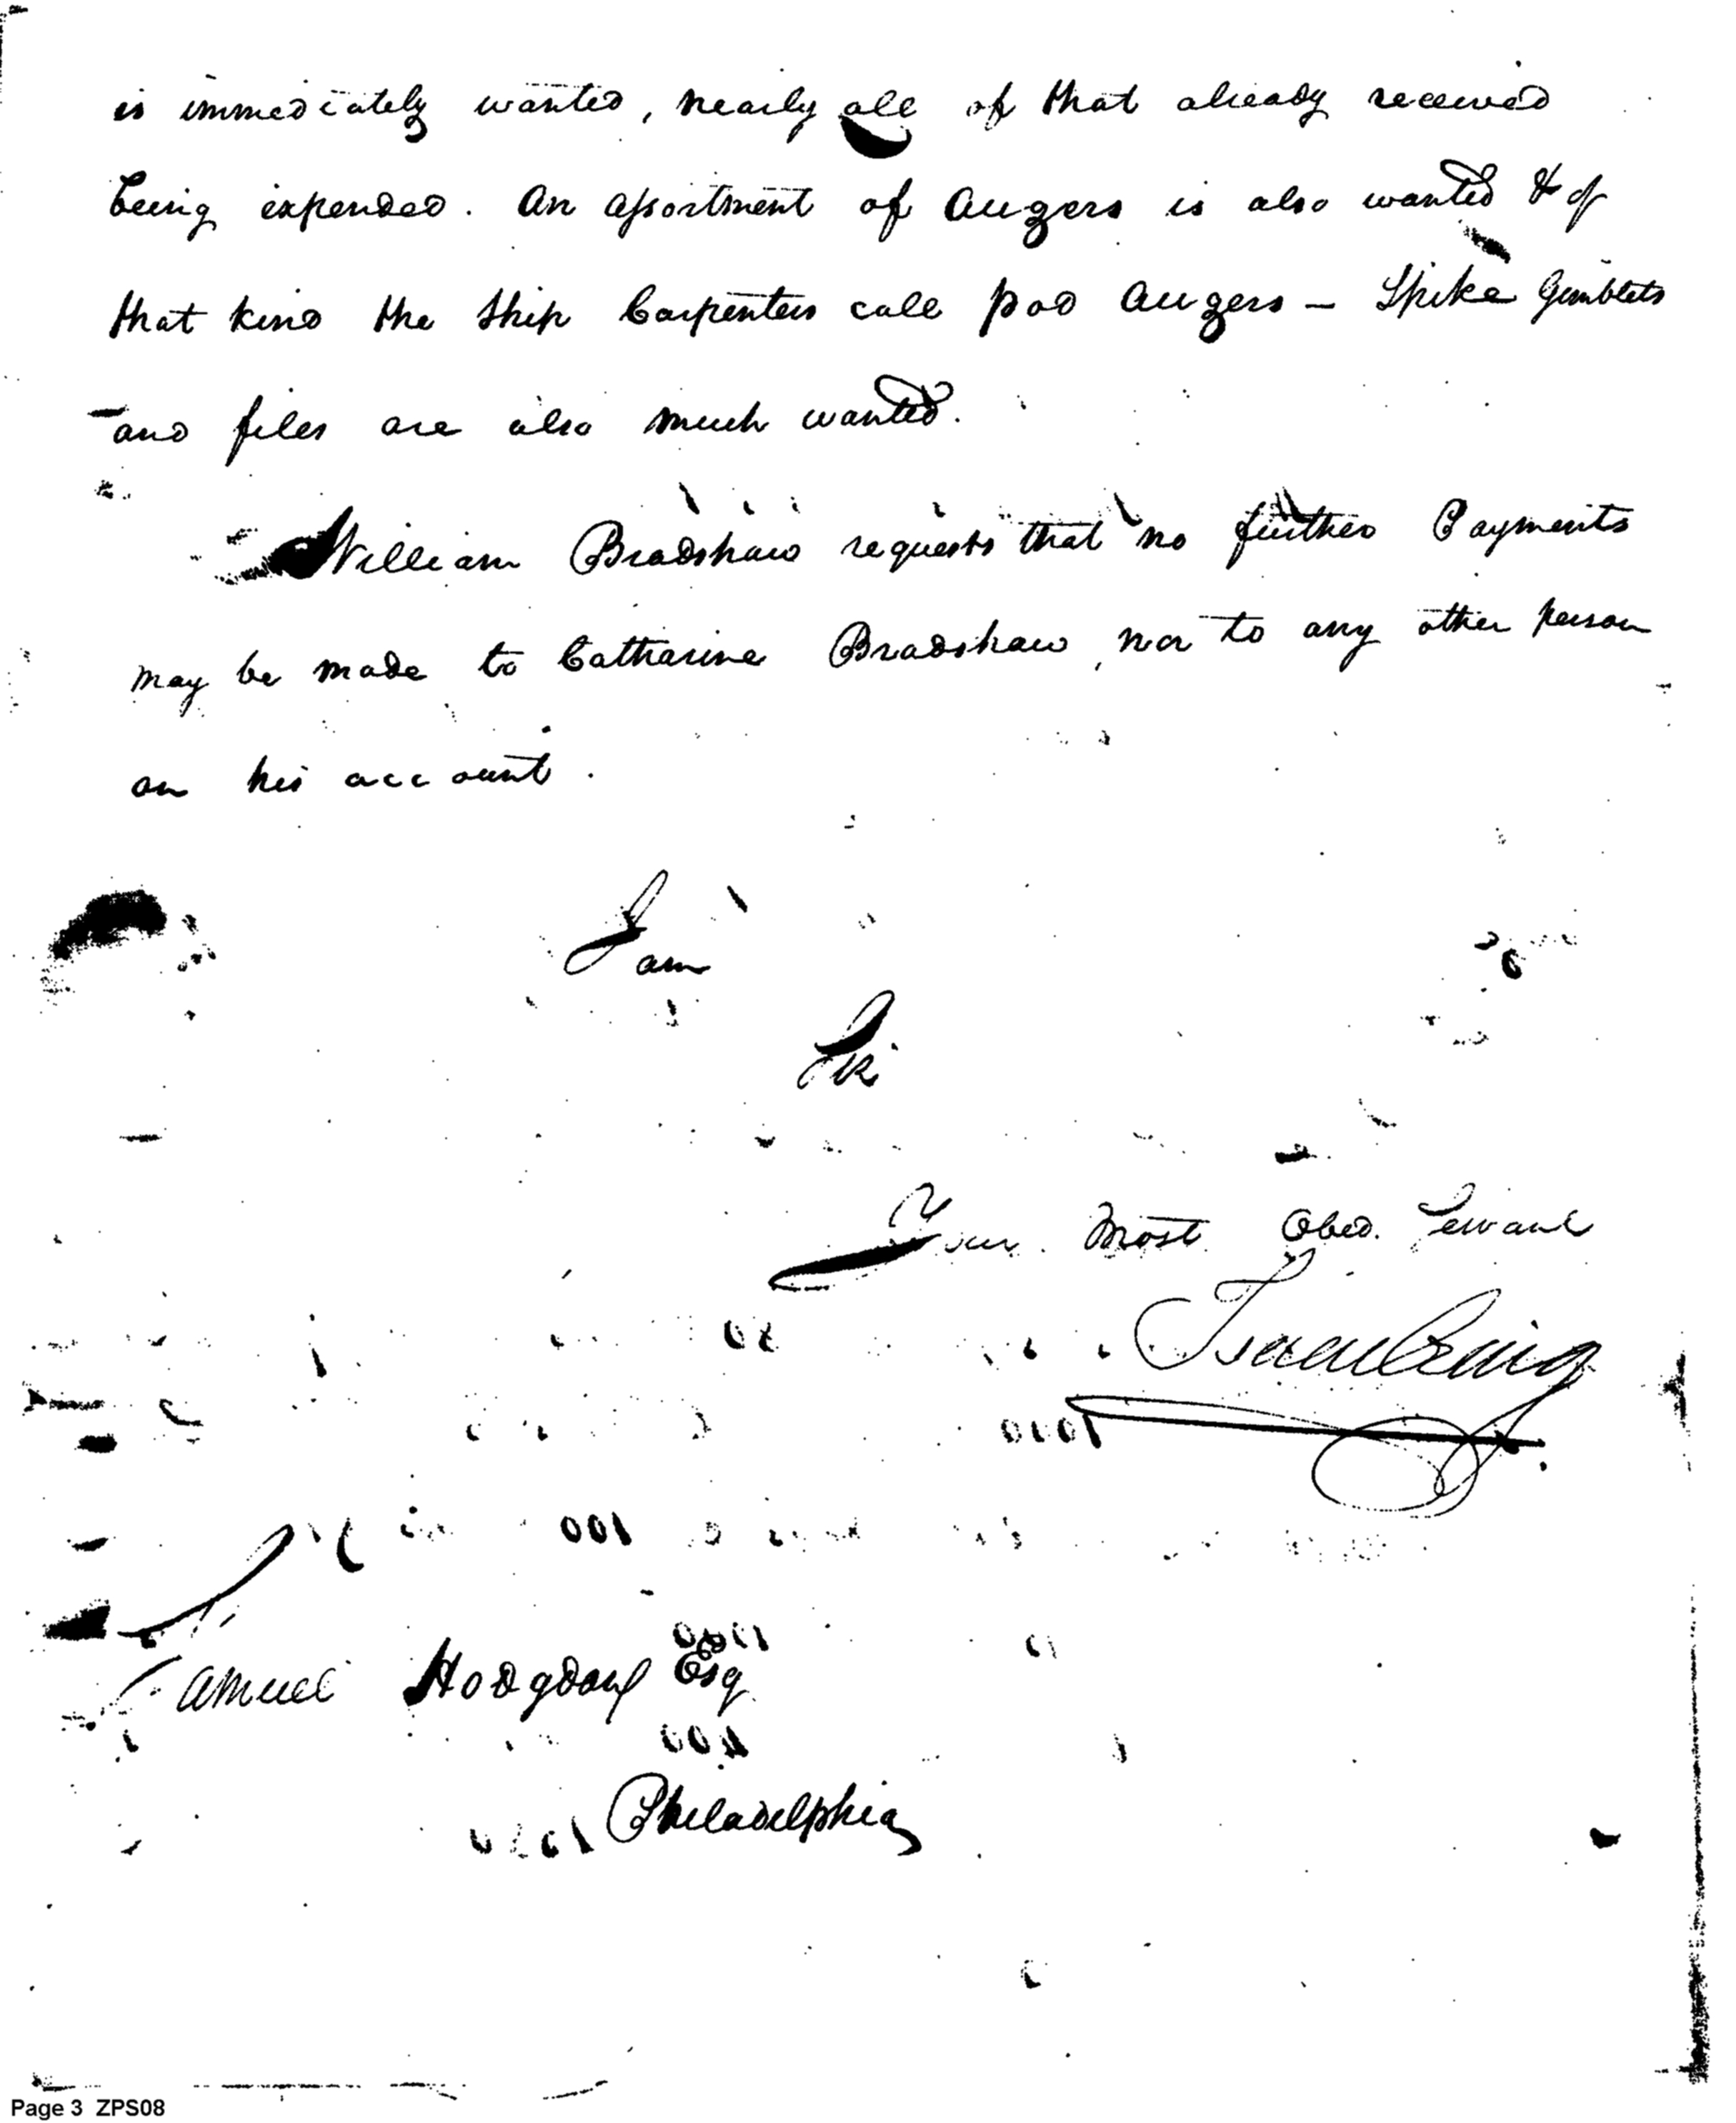 is immediately wanted, nearly all of that already received
being expended. An assortment of Augers is also wanted & of
that kind the Ship Carpenters call pod Augers — Spike Gimblets
and files are also much wanted.
William Bradshaw requests that no further Payments
may be made to Catharine Bradshaw, nor to any other person
on his account.
I am
Sir
Your Most Obed. Servant
Isaac Craig
Samuel Hodgdon Esq
Philadelphia
Page 3 ZPS08